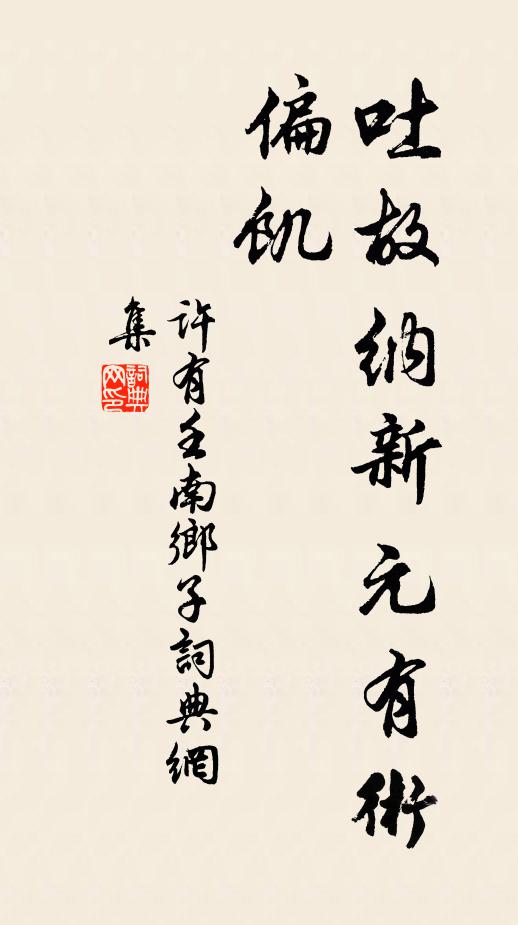 吐故納新元有術
偏飢
許有壬南鄉子詞典網
集
詞典
网印